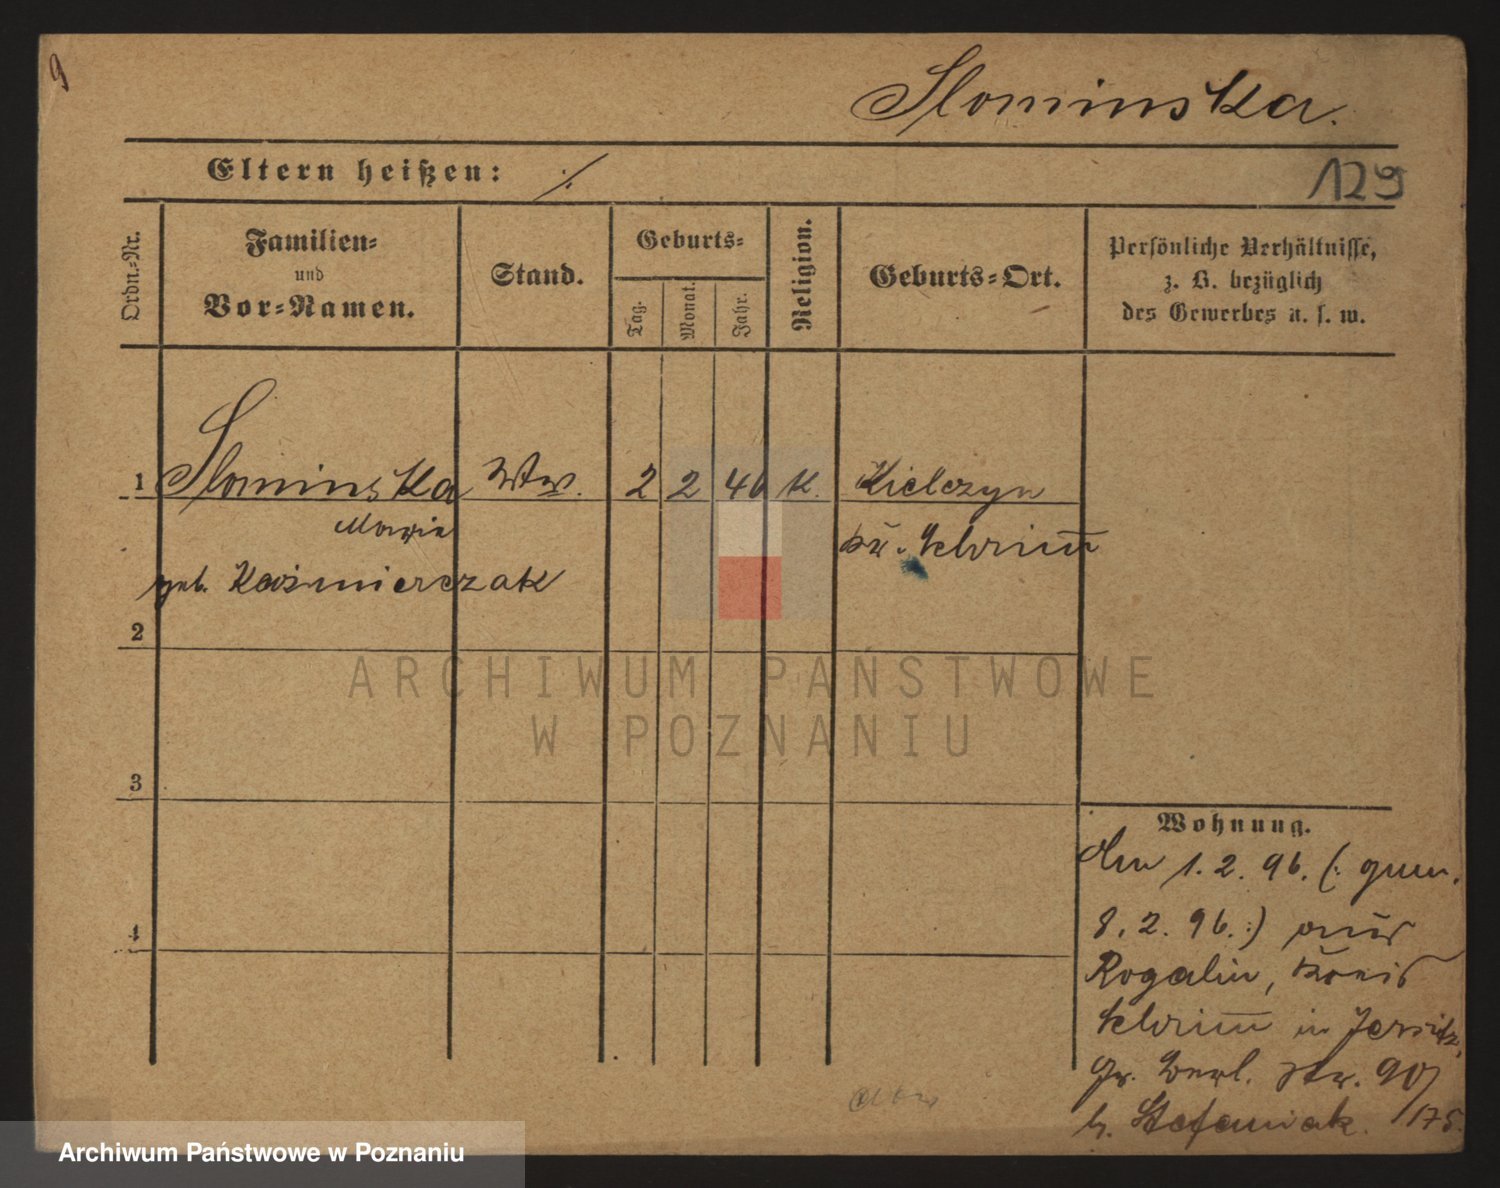 9
Slominska.
Eltern heißen: ·/.
129
Ordn.-Nr.
Familien-
und
Vor-Namen.
Stand.
Geburts-
Tag.
Monat.
Jahr.
Religion.
Geburts-Ort.
Persönliche Verhältnisse,
z. B. bezüglich
des Gewerbes u. s. w.
1 Slominska Ww. 2 2 40 K. Kielczyn
Marie
Kr. Schrim̅
geb. Kaźmierczak
2
3
4
Wohnung.
Am 1. 2. 96. (: gem.
8. 2. 96. :) aus
Rogalin, Kreis
Schrim̅ in Jersitz,
Gr. Berl. Str. 90/
b. Stefaniak. /175.
ARCHIWUM PAŃSTWOWE
W POZNANIU
Archiwum Państwowe w Poznaniu